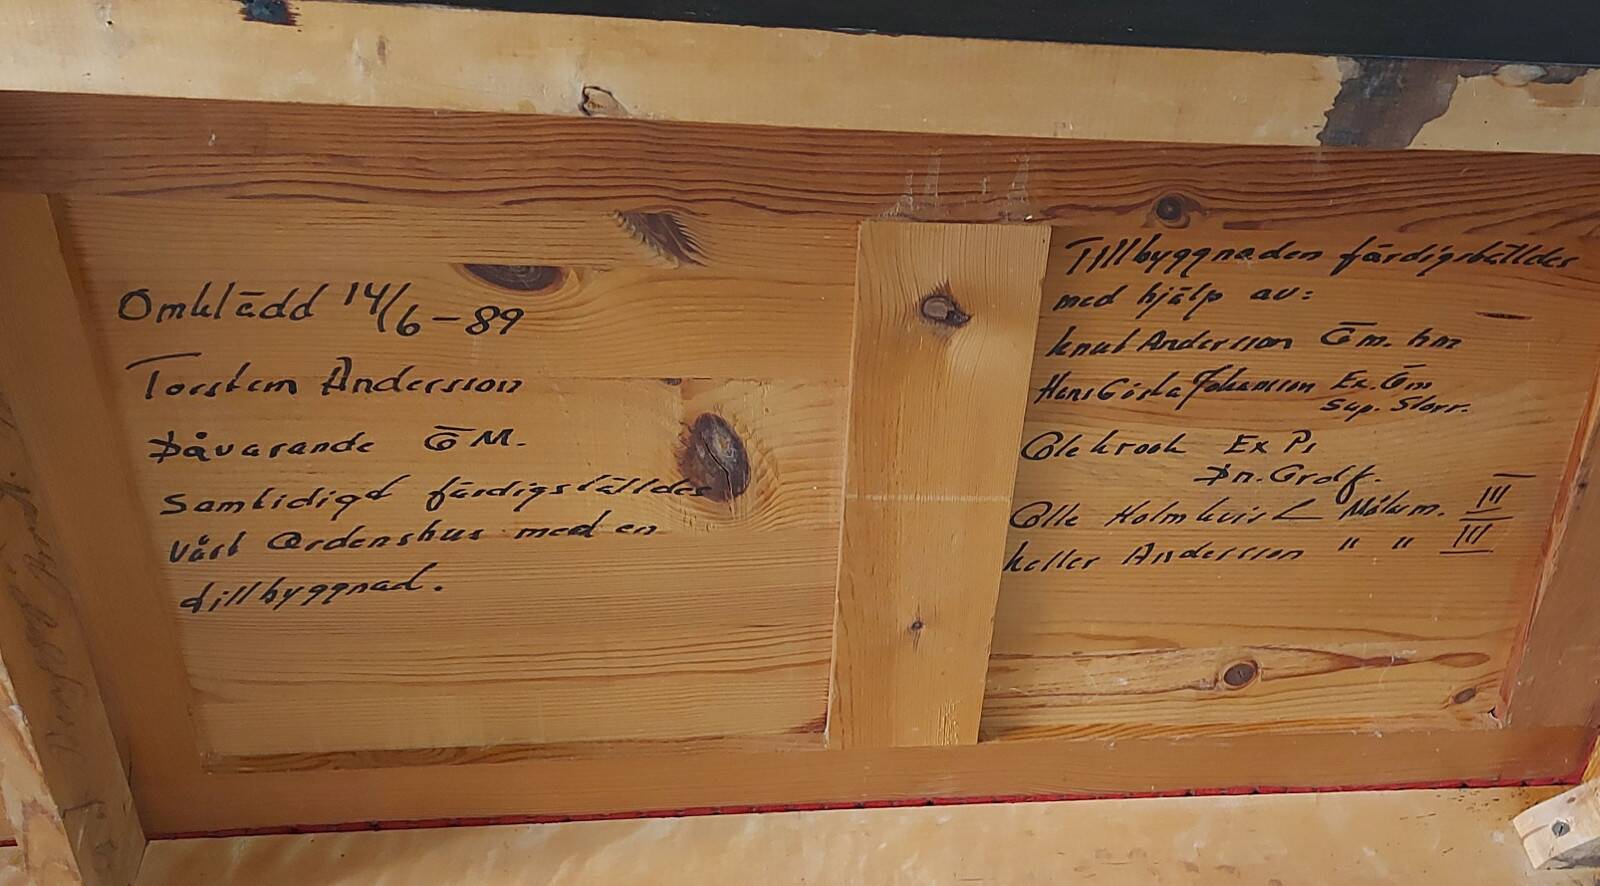 Omklädd 14/6-89
Torstem Andersson
Dåvarande ŌM.
Samtidigt färdigställdes
vårt Ordenshus med en
tillbyggnad.
Tillbyggnaden färdigställdes
med hjälp av:
Knut Andersson Ōm. hm
Hans Gösta Johansson Ex. Ōm
Sup. Storr.
Olle Krook Ex Pr
Dn. Grolf.
Olle Holmkvist Målum. III
Keller Andersson " " III